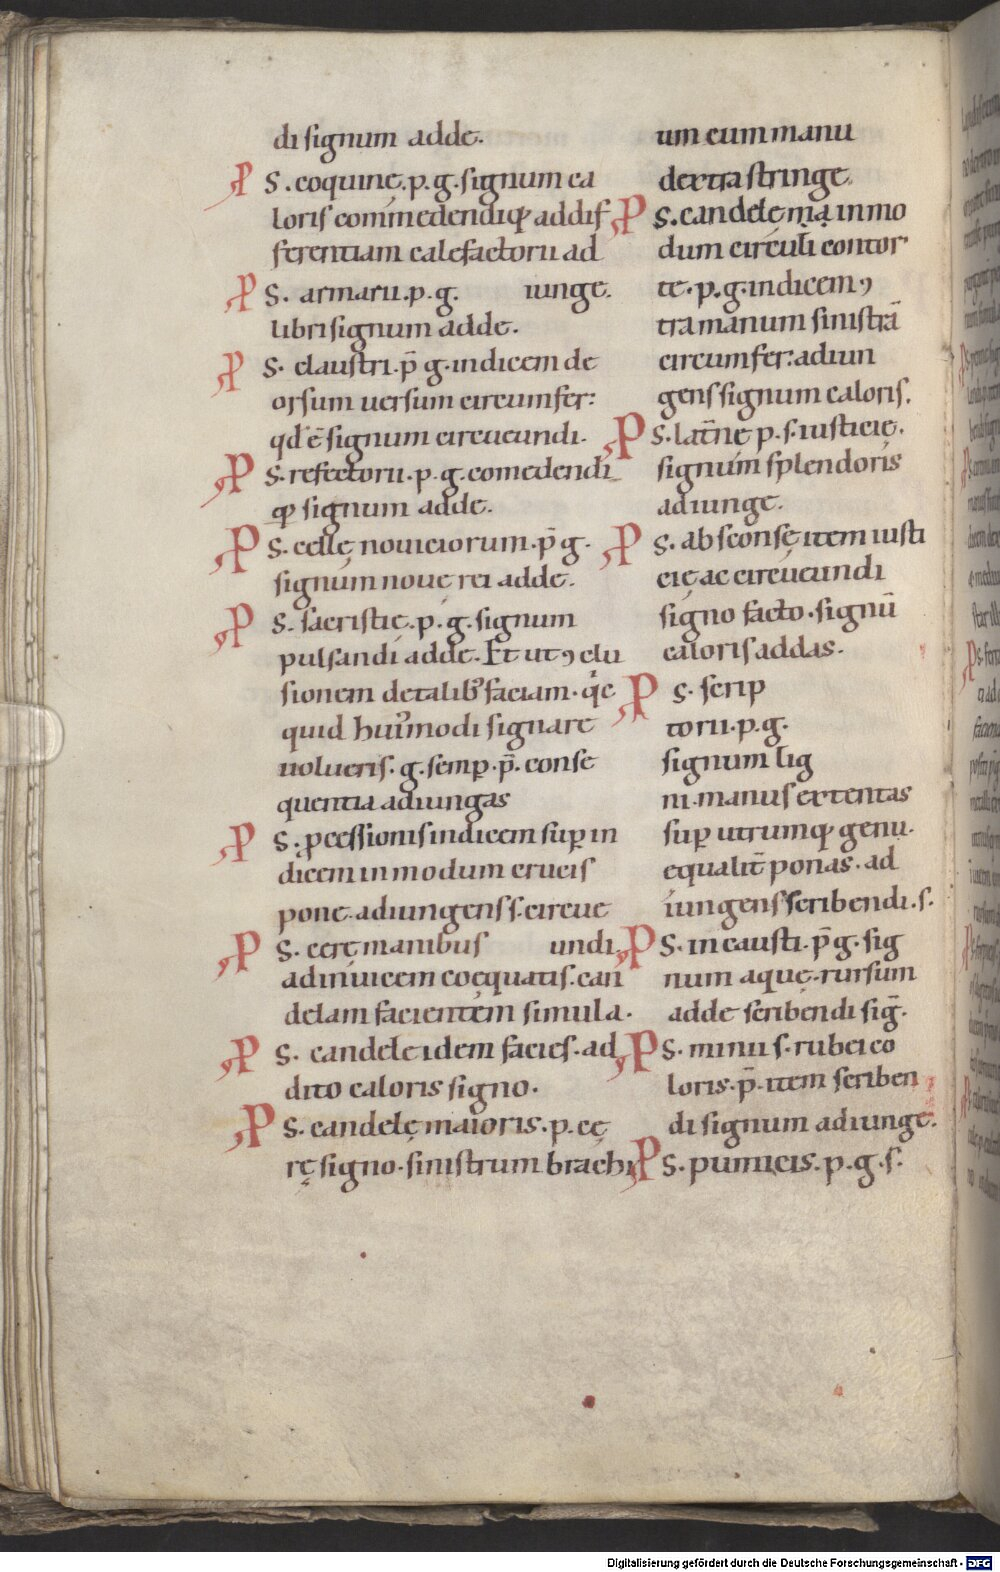 di signum adde.
P S. coquinę. p. g. signum ca
loris comedendiq; addif
ferentiam calefactorii ad
P S. armarii. p. g. iunge.
libri signum adde.
P S. claustri. p̄ g. indicem de
orsum uersum circumfer:
qd ē signum circueundi.
P S. refectorii. p. g. comedendi
qꝫ signum adde.
P S. cellę nouiciorum. p̄ g.
signum nouę rei adde.
P S. sacristię. p. g. signum
pulsandi adde. Et ut ꝯclu
sionem de talib; faciam. qͥc
quid hui᾿modi signare
uolueris. g. semp̲. p̄. conse
quentia adiungas
P S. ꝓcessionis indicem sup̲ in
dicem in modum crucis
pone. adiungens s. circue
P S. cerę manibus undi.
adinuicem coęquatis. can
delam facientem simula.
P S. candelę idem facies. ad
dito caloris signo.
P S. candelę maioris. p. cę
rę signo. sinistrum brachi
um cum manu
dextra stringe.
P S. candelę ma in mo
dum circuli contor
te. p. g. indicem ꝯ
tra manum sinistrā
circumfer: adiun
gens signum caloris.
P S. lat̄nę p. s. iusticię.
signum splendoris
adiunge.
P S. absconsę item iusti
cię ac circueundi
signo facto. signū
caloris addas.
P S. scrip
torii. p. g.
signum lig
ni. manus extentas
sup̲ utrumq; genu.
equalit̄ ponas. ad
iungens scribendi. s.
P S. incausti. p̄ g. sig
num aquę. rursum
adde scribendi sig̅.
P S. minii s. rubei co
loris. p̄. item scriben
di signum adiunge.
P S. pumicis. p. g. s.
Digitalisierung gefördert durch die Deutsche Forschungsgemeinschaft - DFG